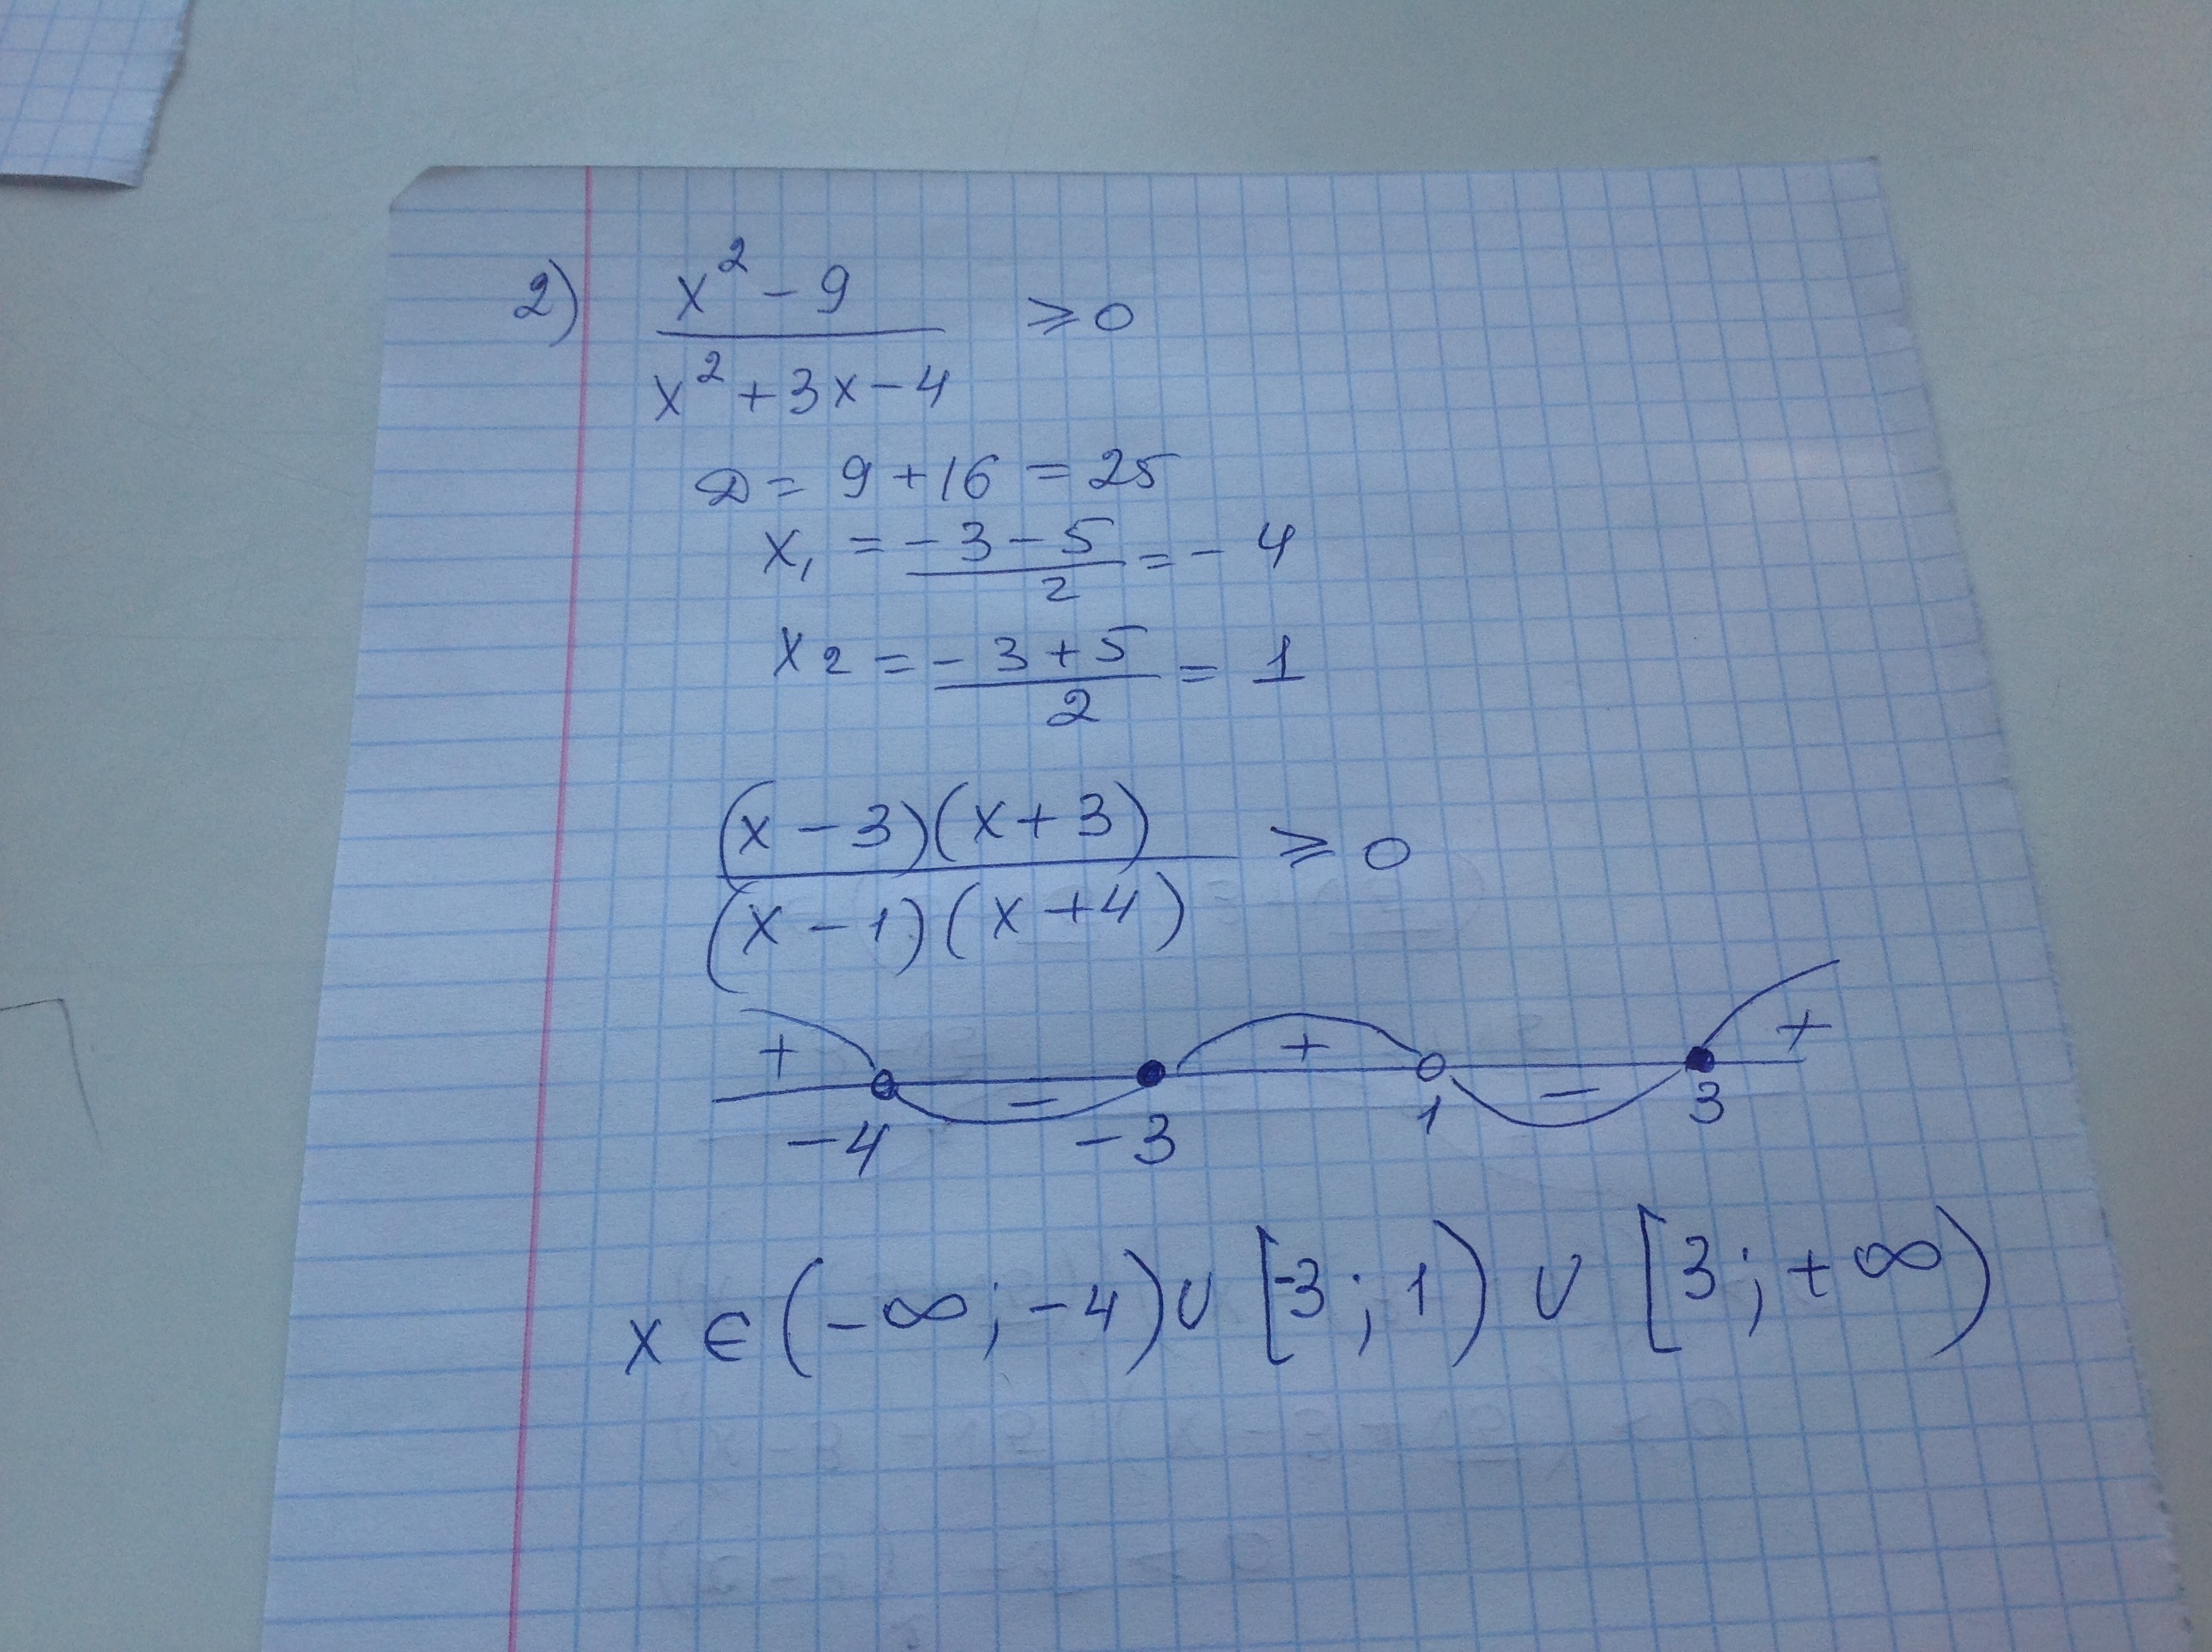 2) x² - 9 / x² + 3x - 4 ⩾ 0
D = 9 + 16 = 25
x₁ = -3 - 5 / 2 = -4
x₂ = -3 + 5 / 2 = 1
(x - 3)(x + 3) / (x - 1)(x + 4) ⩾ 0
+ - + - +
-4 -3 1 3
x ∈ (-∞; -4) ∪ [-3; 1) ∪ [3; +∞)